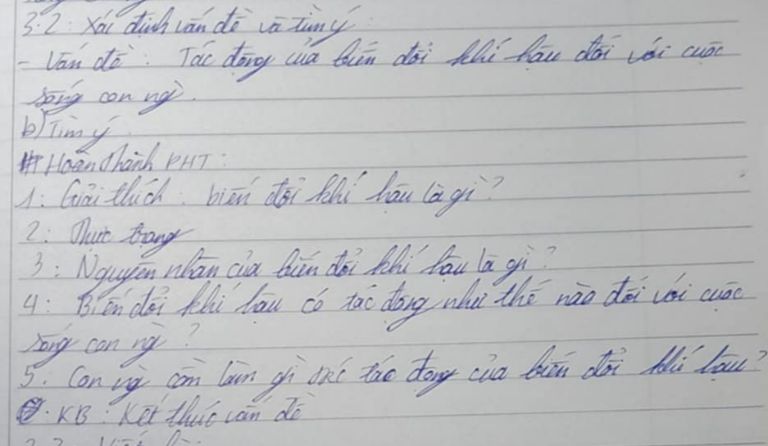 3.2: Xác định vấn đề và tìm ý
- Vấn đề: Tác động của biến đổi khí hậu đối với cuộc
sống con ng`
b) Tìm ý
# Hoàn thành PHT:
1: Giải thích: biến đổi khí hậu là gì?
2: Thực trạng
3: Nguyên nhân của biến đổi khí hậu là gì?
4: Biến đổi khí hậu có tác động như thế nào đối với cuộc
sống con ng`?
5: Con ng` cần làm gì trc tác động của biến đổi khí hậu?
KB: Kết thúc vấn đề